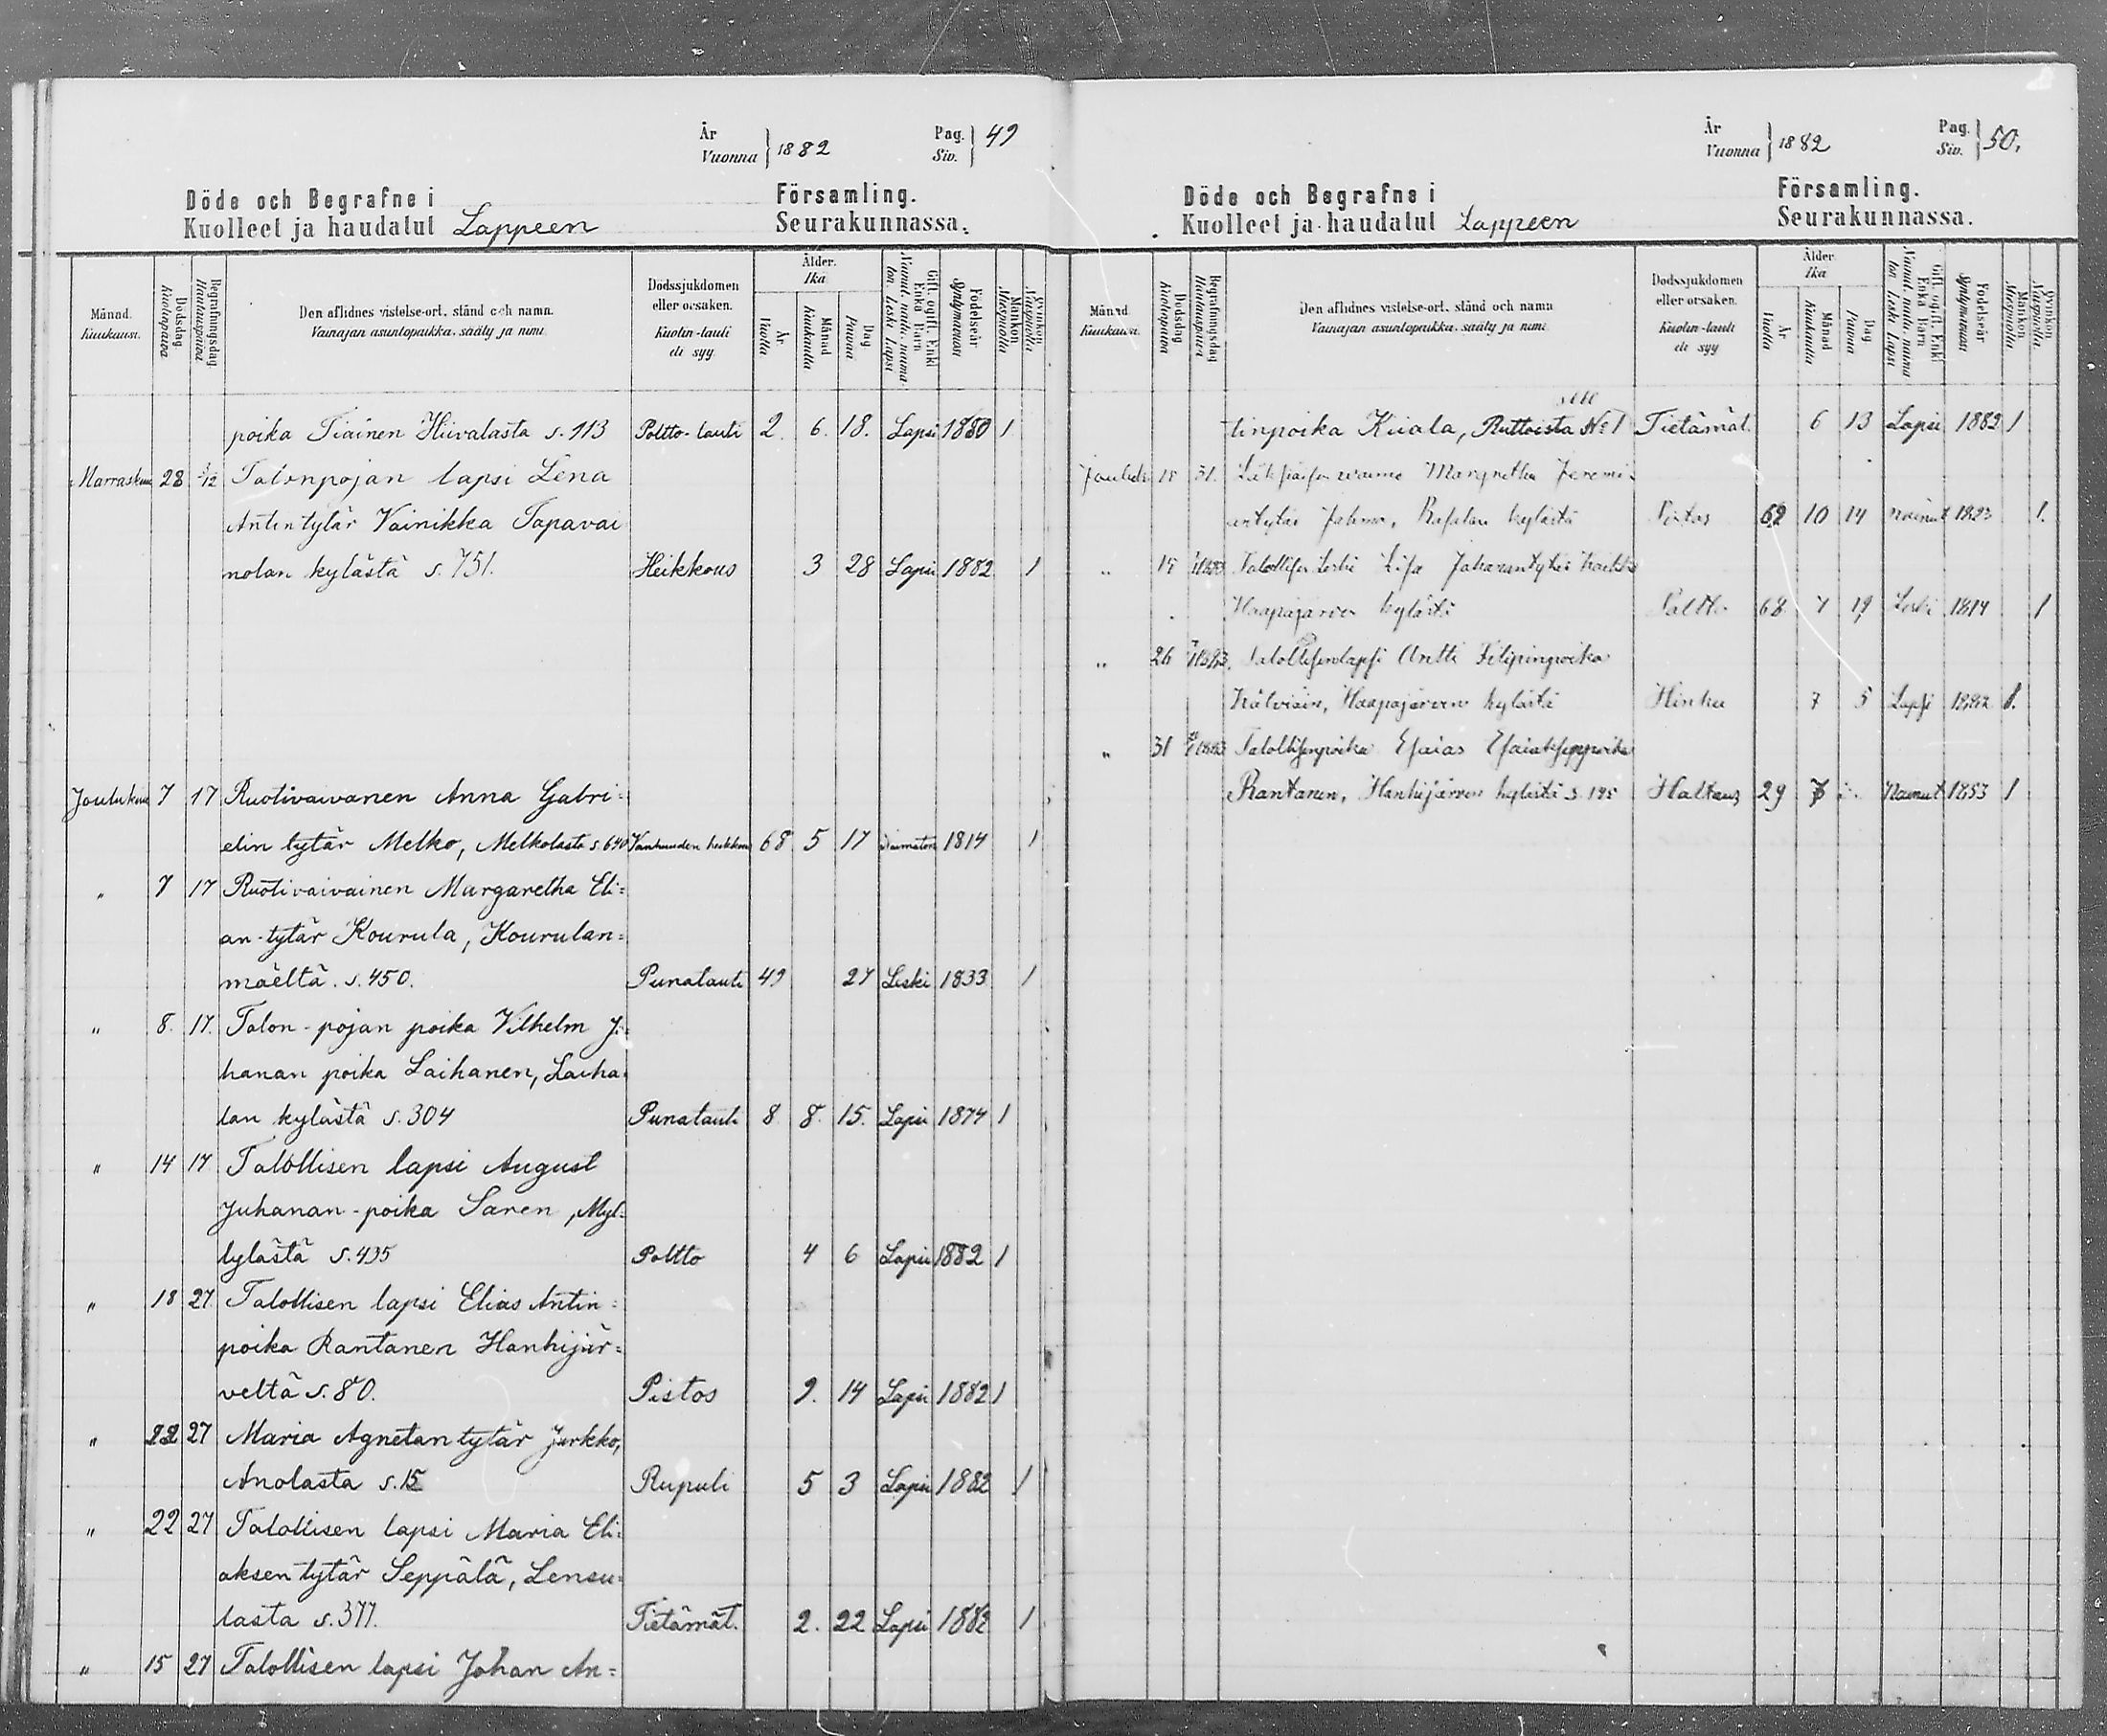 År
Vuonna } 1882
Pag.
Siv. } 49
Döde och Begrafne i Församling.
Kuolleet ja haudatut Lappeen Seurakunnassa.
Månad. Kuukausi.
Dödsdag Kuolinpäivä
Begrafningsdag Hautauspäivä
Den aflidnes vistelse-ort, stånd och namn.
Vainajan asuntopaikka, sääty ja nimi
Dödssjukdomen eller orsaken.
Kuolin-tauti eli syy.
Ålder. Ikä
År Vuotta
Månad Kuukautta
Dag Päivää
Gift, ogift, Enkl. Enka Barn
Födelseår Syntymävuosi
Mankön Miespuolia
Qvinkön Naispuolia
poika Tiainen Hiivalasta s. 113 Poltto-tauti 2. 6. 18. Lapsi 1880 1
Marraskuu 28 Talonpojan lapsi Lena
Antintytär Vainikka Tapavai
nolan kylästä s. 751. Heikkous 3 28 Lapsi 1882 1
Joulukuu 7 17 Ruotivaivanen Anna Gabri=
elin tytär Melko, Melkolasta s. 640 Vanhuuden heikkous 68 5 17 Naimaton 1814 1
" 7 17 Ruotivaivainen Margaretha Eli=
an-tytär Kourula, Kourulan=
mäeltä. s. 450. Punatauti 49 27 Leski 1833 1
" 8. 17. Talon-pojan poika Vilhelm Ju=
hanan poika Laihanen, Laiha=
lan kylästä s. 304 Punatauti 8 8 15. Lapsi 1874 1
" 14 17 Talollisen lapsi August
Juhanan-poika Saren, Myl=
lylästä s. 435 Poltto 4 6 Lapsi 1882 1
" 18 27. Talollisen lapsi Elias Antin=
poika Rantanen Hanhijär=
veltä s. 80. Pistos 9. 14 Lapsi 1882 1
" 22 27 Maria Agnetan tytär Jurkko,
Anolasta s. 15 Rupuli 5 3 Lapsi 1882 1
" 22 27 Talollisen lapsi Maria Eli=
aksen tytär Seppälä, Lensu=
lasta s. 377. Tietämät. 2. 22 Lapsi 1882 1
" 15 27 Talollisen lapsi Johan An=
År
Vuonna } 1882
Pag.
Siv. } 50.
Döde och Begrafne i Församling.
Kuolleet ja haudatut Lappeen Seurakunnassa.
Månad. Kuukausi.
Dödsdag Kuolinpäivä
Begrafningsdag Hautauspäivä
Den aflidnes vistelse-ort, stånd och namn
Vainajan asuntopaikka, sääty ja nimi.
Dödssjukdomen eller orsaken.
Kuolin-tauti eli syy
Ålder. Ikä
År Vuotta
Månad Kuukautta
Dag Päivää
Gift, ogift, Enkl. Enka Barn
Födelseår Syntymävuosi
Mankön Miespuolia
Qvinkön Naispuolia
tinpoika Kiiala, Ruttoista No 1 Tietämät. 6 13 Lapsi 1882 1
Jouluk. 18 31. waimo Margretha Jeremi=
kylästä Pistos 62 10 14 1823 1.
" 19 Leski Lisa Juhanantytär
Haapajärven kylästä Poltto 68 7 19 Leski 1814 1
" 26 Talollisenlapsi Antti Filipinpoika
Kälviäin, Haapajärven kylästä Hinku 7 5 Lapsi 1882 1.
" 31 Talollisenpoika Esaias Esaiaksenpoika
Rantanen, Hanhijärven kylästä s. 195 Halkaus 29 Nainut 1853 1